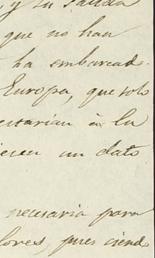 y su salida
que no han
ha embarcad
Europa, que solo
entarian à la
un dato
necesaria para
lores, pues siend